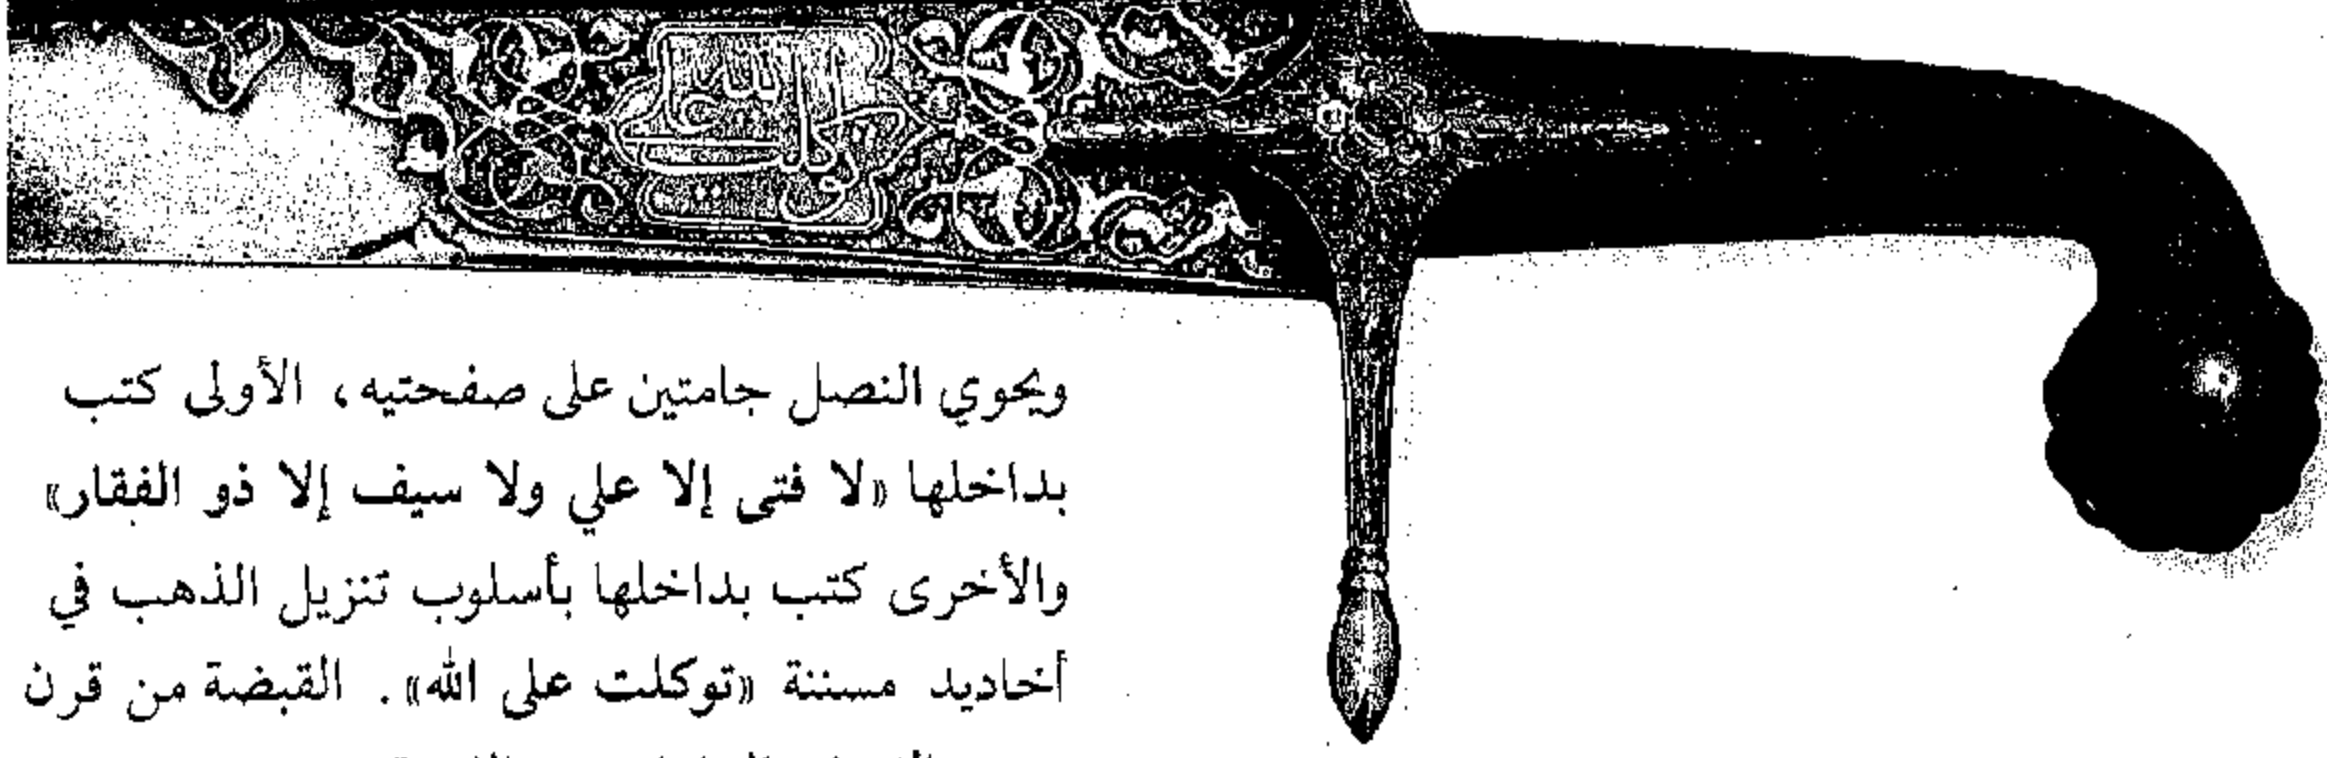 توكلت على الله
ويحوي النصل جامتين على صفحتيه، الأولى كتب
بداخلها «لا فتى إلا علي ولا سيف إلا ذو الفقار»
والأخرى كتب بداخلها بأسلوب تنزيل الذهب في
أخاديد مسننة «توكلت على الله». القبضة من قرن